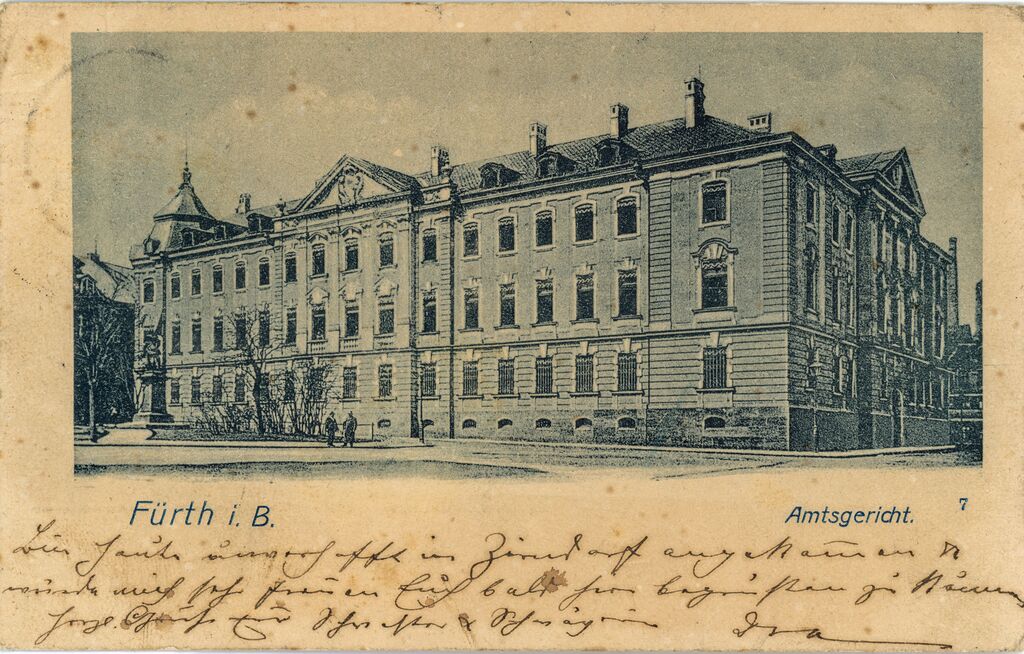 Fürth i. B.
Amtsgericht.
7
Bin heute unverhofft in Zirndorf angekommen &
würde mich sehr freuen Euch bald hier begrüßen zu können
Herzl. Gruß Eür Schwester & Schwägerin